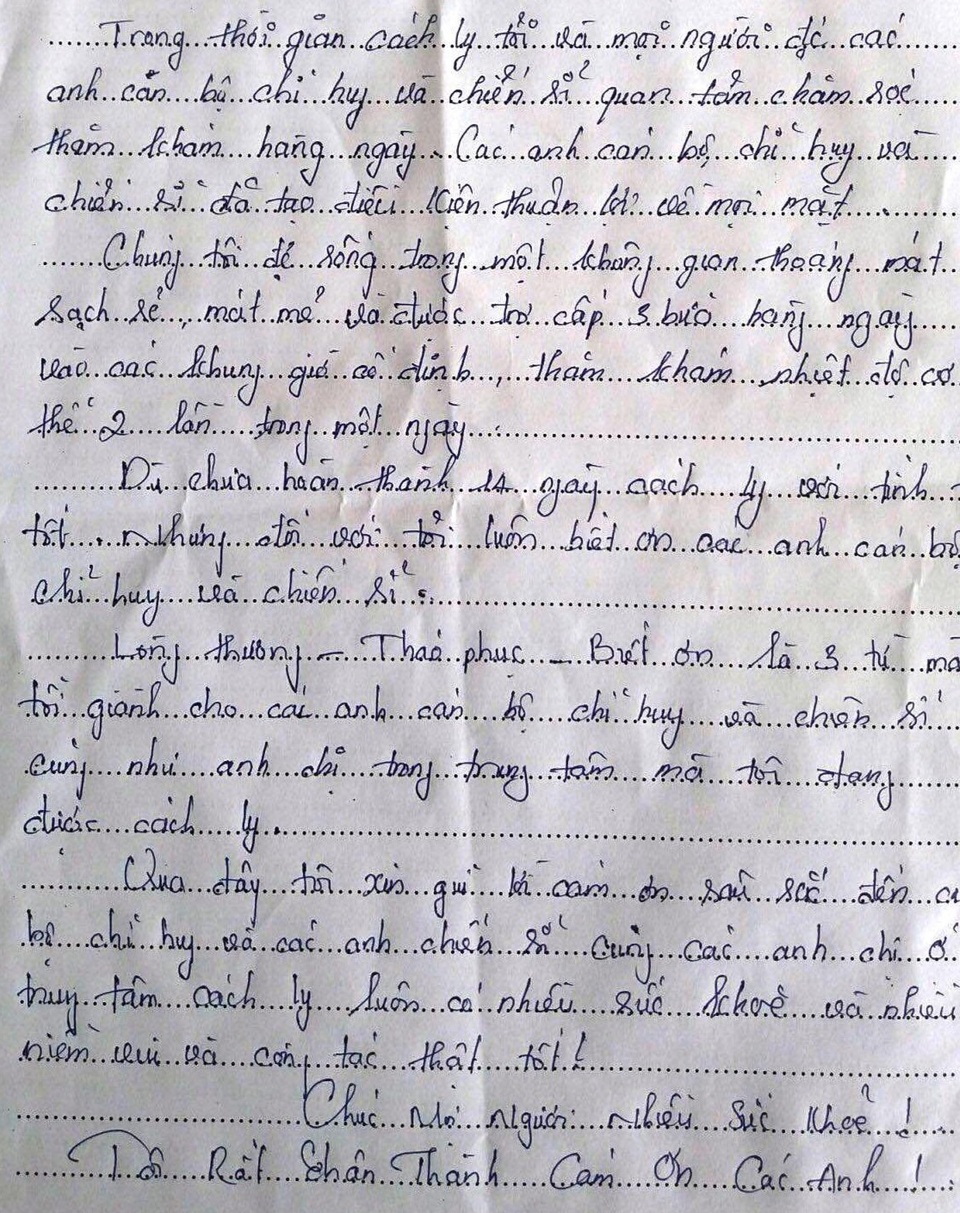 Trong thời gian cách ly tôi và mọi người đc các
anh cán bộ chỉ huy và chiến sĩ quan tâm chăm sóc
thăm khám hàng ngày. Các anh cán bộ chỉ huy và
chiến sĩ đã tạo điều kiện thuận lợi về mọi mặt.
Chúng tôi đc sống trong một không gian thoáng mát
sạch sẽ, mát mẻ và được trợ cấp 3 buổ hàng ngày
vào các khung giờ cố định, thăm khám nhiệt độ cơ
thể 2 lần trong một ngày.
Dù chưa hoàn thành 14 ngày cách ly với tình
tốt. Nhưng đối với tôi luôn biết ơn các anh cán bộ
chỉ huy và chiến sĩ.
Lòng thương - Thao phục - Biết ơn là 3 từ mà
tôi giành cho các anh cán bộ chỉ huy và chiến sĩ
cũng như anh chị trong trung tâm mà tôi đang
được cách ly.
Qua đây tôi xin gửi lời cảm ơn sâu sắc đến
bộ chỉ huy và các anh chiến sĩ cùng các anh chị ở
trung tâm cách ly luôn có nhiều sức khoẻ và nhiều
niềm vui và công tác thật tốt!
Chúc Mọi Người Nhiều Sức Khoẻ!
Tôi Rất Chân Thành Cảm Ơn Các Anh!